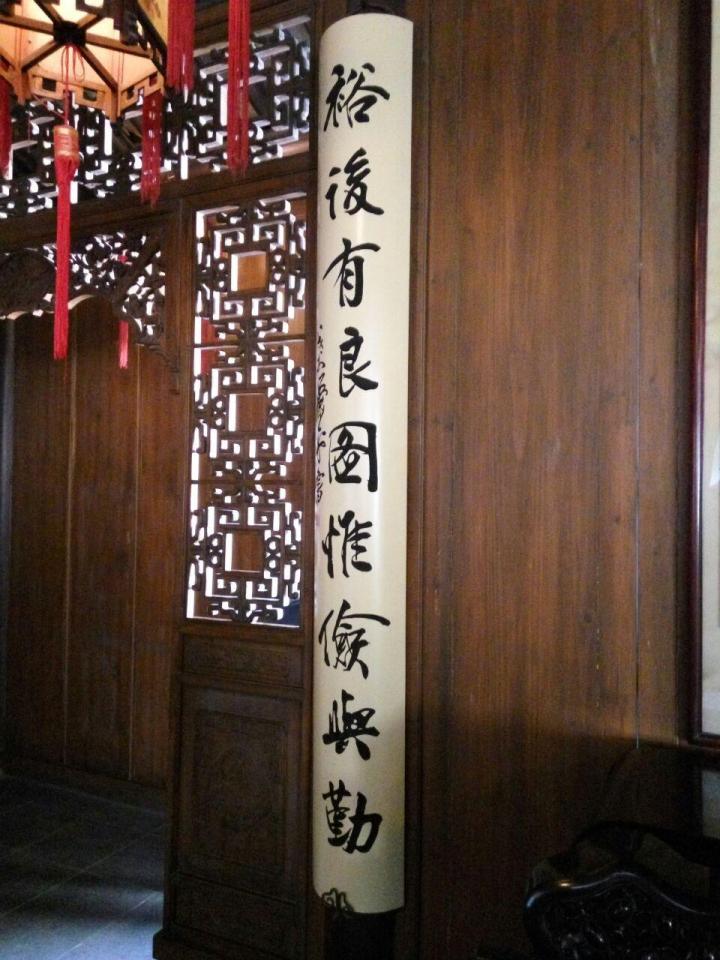 裕後有良圖惟儉與勤